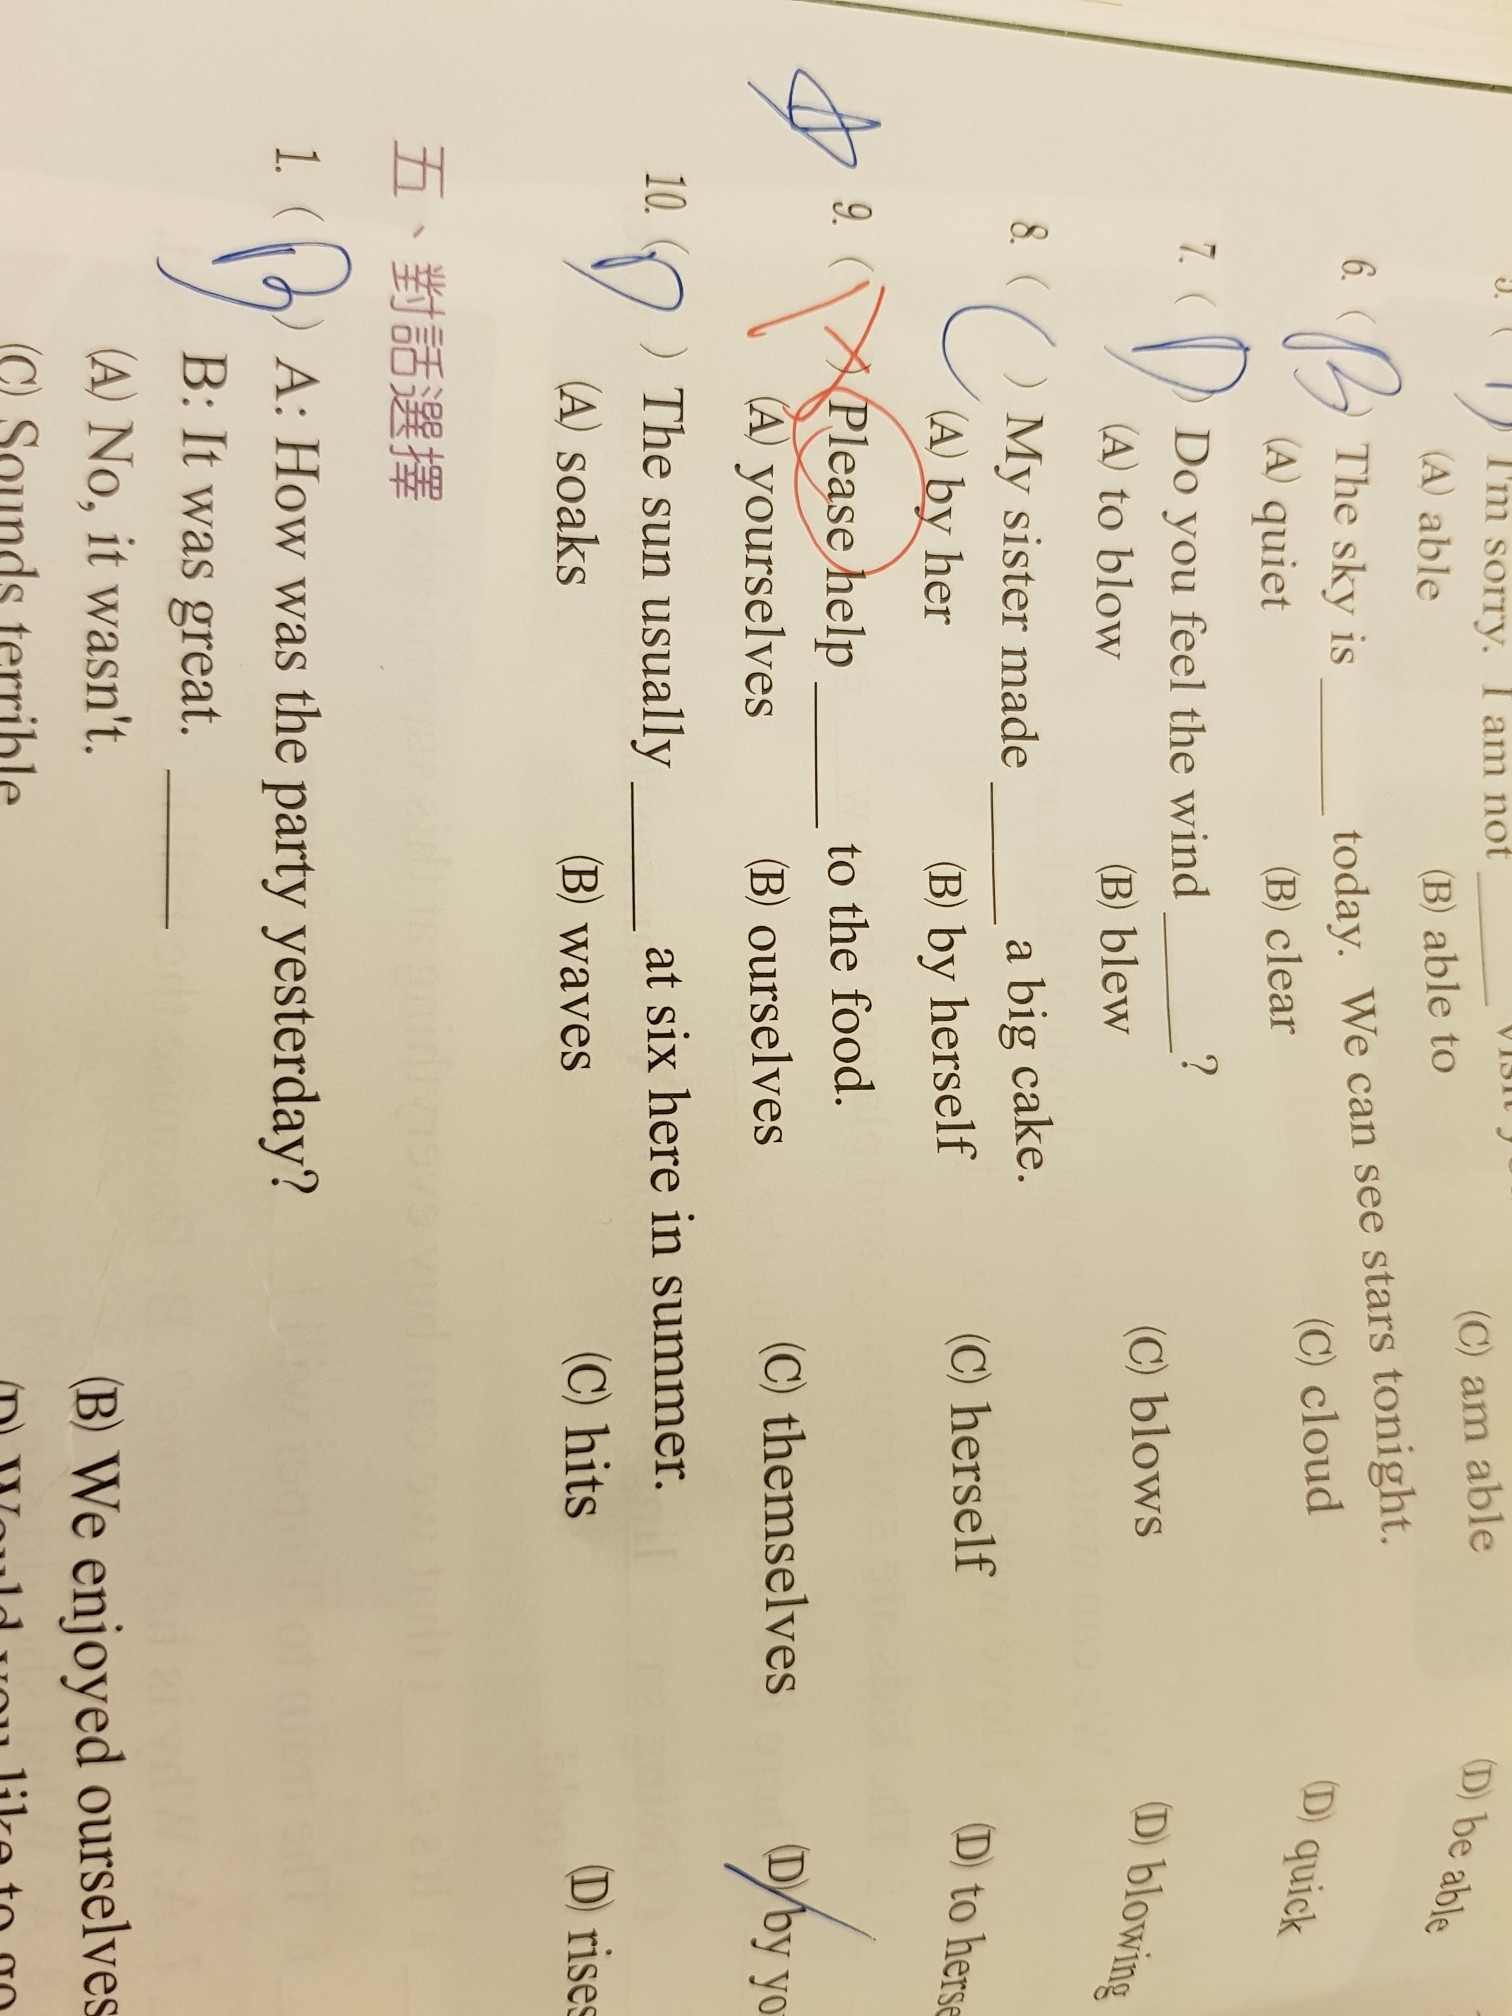 I'm sorry. I am not ______
(A) able (B) able to (C) am able (D) be able
6. ( B ) The sky is ______ today. We can see stars tonight.
(A) quiet (B) clear (C) cloud (D) quick
7. ( D ) Do you feel the wind ______?
(A) to blow (B) blew (C) blows (D) blowing
8. ( C ) My sister made ______ a big cake.
(A) by her (B) by herself (C) herself (D) to herse
A 9. ( ) Please help ______ to the food.
(A) yourselves (B) ourselves (C) themselves (D) by yo
10. ( D ) The sun usually ______ at six here in summer.
(A) soaks (B) waves (C) hits (D) rises
五、對話選擇
1. ( B ) A: How was the party yesterday?
B: It was great. ______
(A) No, it wasn't. (B) We enjoyed ourselves
(C) Sounds terrible (D) Would you like to go